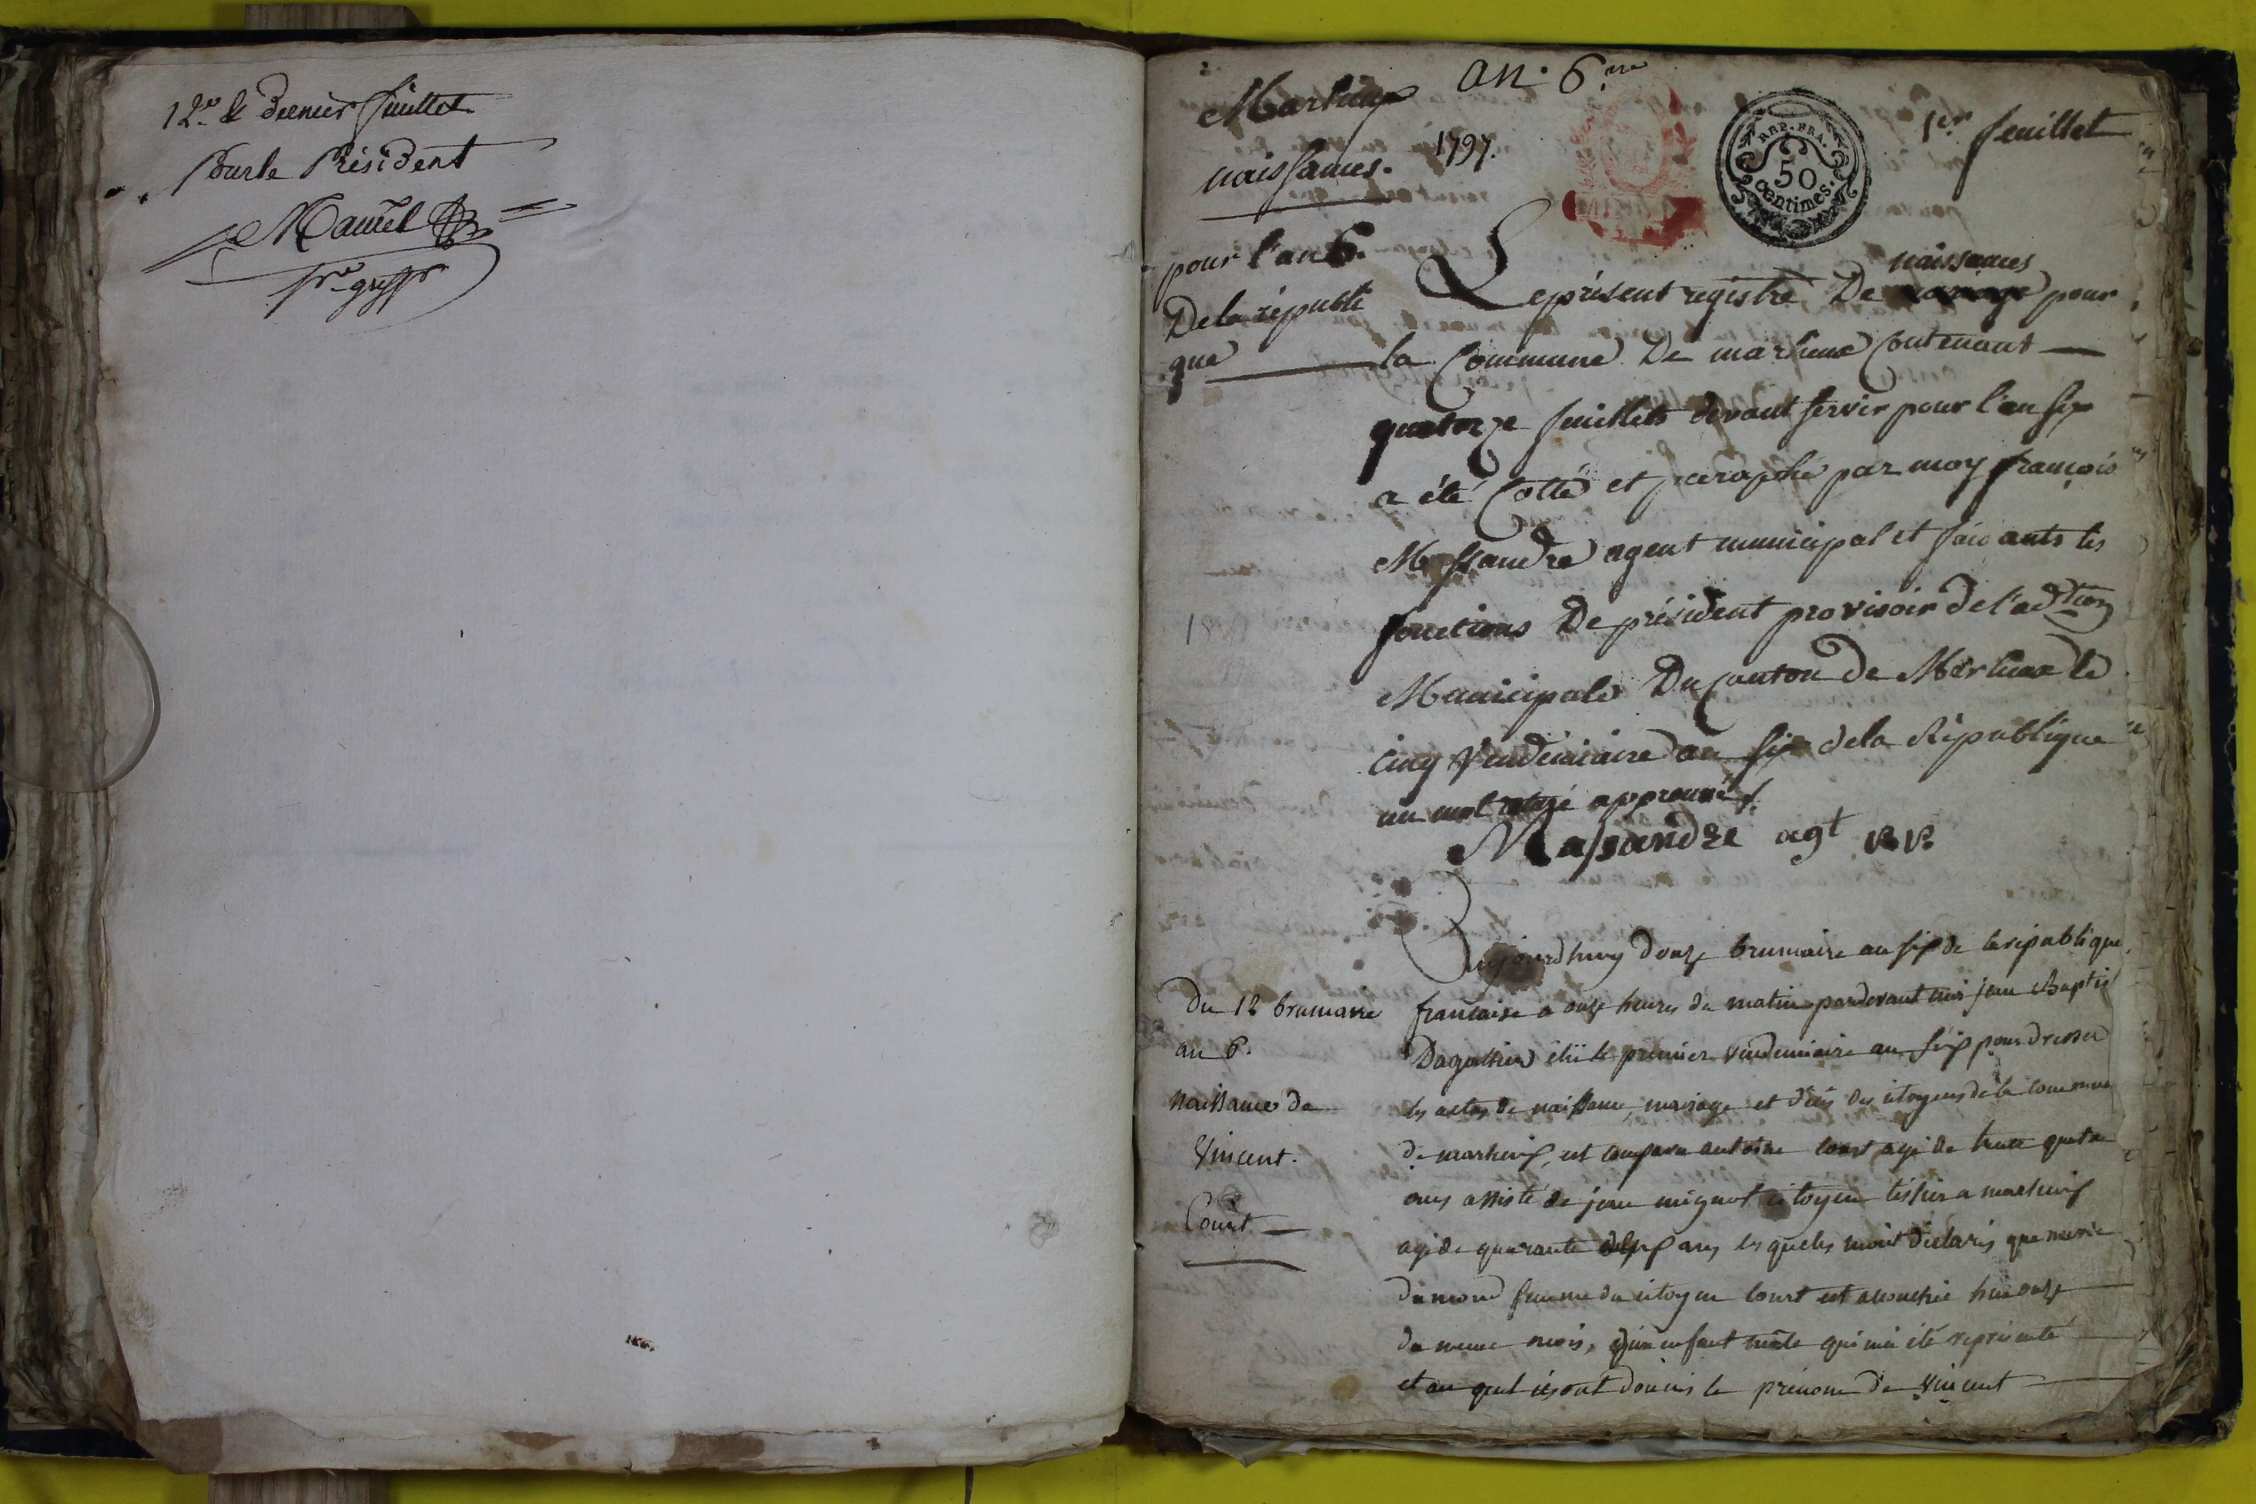 12.e & Dernier feuillet
Pour le Président
Manuel
an. 6.me
Martinx
naissances. 1797.
1er feuillet
REP. FRA.
50
centimes.
pour l'an 6.
De la républi
que
naissances
Le présent registre De mariage pour
la Commune De marsinx Contenant
quatorze feuillets devant servir pour l'an six
a été Cotté et paraphé par moy françois
Massandre agent municipal et faisants les
fonctions De président provisoir de l'adtion
Municipale Du Canton de Marsinx le
cinq Vendémiaire an six dela République
un mot rayé approuvé
Massandre agt
Du 12 brumaire
an 6.
Naissance de
Vincent.
Court
Aujourdhuy douze brumaire an six de la république
française a onze heures du matin pardevant moi jean Baptis
élü le premier vendemiaire an six pour dresser
les actes de naissance, mariage et décès des citoyens de la commune
de , est comparu antoine Court agé de trente quatre
ans assisté de jean mignot citoyen tissier a
agé de quarante ans lesquels m'ont déclarés que marie
dumond femme du citoyen Court est accouchée hier onze
du meme mois, d'un enfant mâle qui m'a été représenté
et au quel ils ont donnés le prénom de Vincent